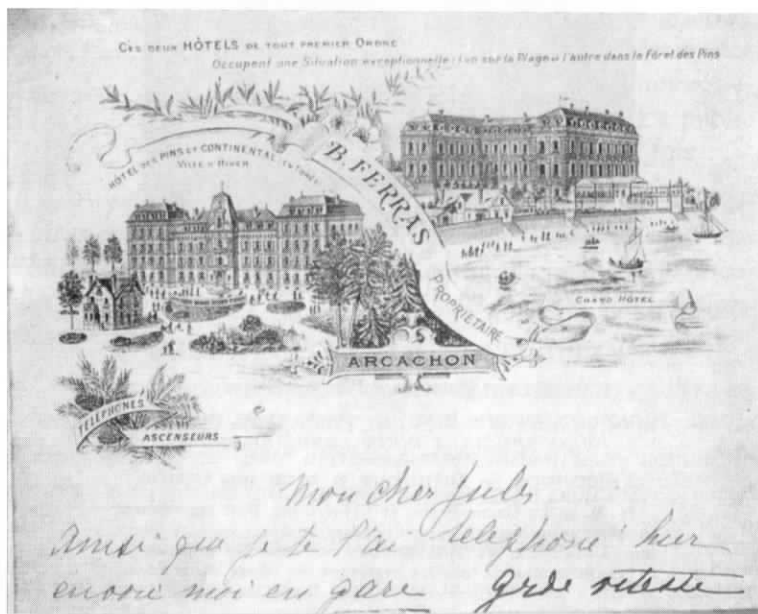 CES DEUX HÔTELS DE TOUT PREMIER ORDRE
Occupent une Situation exceptionnelle: l'un sur la Plage et l'autre dans la Fôret des Pins
HÔTEL DES PINS ET CONTINENTAL
VILLE D'HIVER
B. FERRAS
PROPRIETAIRE
GRAND HÔTEL
ARCACHON
TELEPHONES
ASCENSEURS
Mon cher Jules
Ainsi que je te l'ai telephoné hier
envoie moi en gare grde vitesse